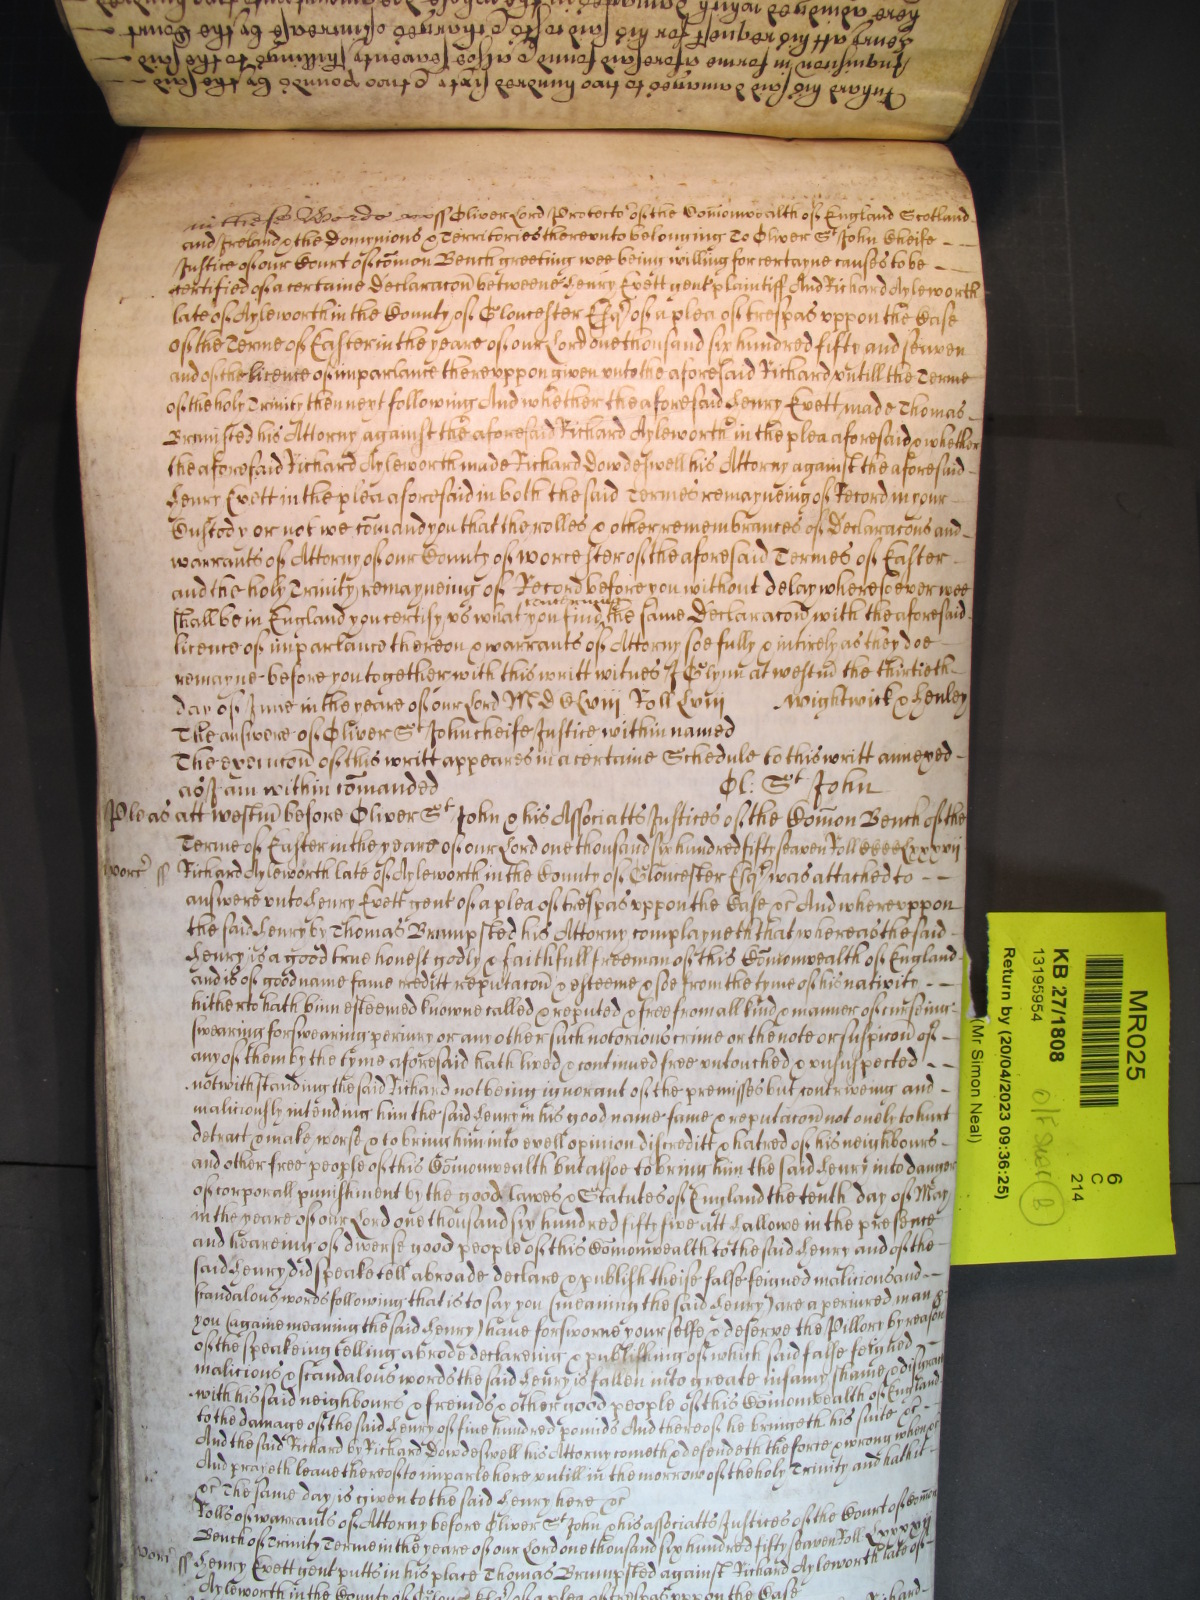 in these Words ss Oliver Lord Protecto^r of the Com̄onwealth of England Scotland
and Ireland & the Dominions & Territories thereunto belonging To Oliver S^t John Cheife
Justice of our Court of com̄on Bench greeting wee being willing for certayne causes to be
certified of a certaine Declaracōn betweene Henry Evett gent plaintiff And Richard Ayleworth
late of Ayleworth in the County of Gloucester Esq^r of a plea of trespas vppon the Case
of the Terme of Easter in the yeare of our Lord one thousand six hundred fifty and seaven
and of the licence of imparlance therevppon given vnto the aforesaid Richard vntill the Terme
of the holy Trinity then next following And whether the aforesaid Henry Evett made Thomas
Brampsted his Attorny against the aforesaid Richard Ayleworth in the plea aforesaid & whether
the aforesaid Richard Ayleworth made Richard Dowdeswell his Attorny against the aforesaid
Henry Evett in the plea aforesaid in both the said Termes remayneing of Record in your
Custody or not we com̄and you that the rolles & other remembrances of Declaracōns and
warrants of Attorny of our County of Worcester of the aforesaid Termes of Easter
and the holy Trinity remayneing of Record before you without delay wheresoever wee
shall be in England you certify vs what you find concerning the same Declaracōn with the aforesaid
licence of imparlance thereon & warrants of Attorny soe fully & intirely as they doe
remayne before you together with this writt witnes J Glynn at westm̄ the thirtieth
day of June in the yeare of our Lord M D C Lviii Roll Lviii Wightwick & Henley
The answere of Oliver S^t John cheife Justice within named
The execucōn of this writt appeares in a certaine Schedule to this writt annexed
as I am within com̄anded Ol: S^t John
Pleas att westm̄ before Oliver S^t John & his Associatts Justices of the Com̄on Bench of the
Terme of Easter in the yeare of our Lord one thousand six hundred fifty seaven Roll
worc^r ss Richard Ayleworth late of Ayleworth in the County of Gloucester Esq^r was attached to
answere vnto Henry Evett gent of a plea of trespas vppon the Case &c And wherevppon
the said Henry by Thomas Brampsted his Attorny complayneth that whereas the said
Henry is a good true honest godly & faithfull freeman of this Com̄onwealth of England
and is of good name fame creditt reputacōn & esteeme & soe from the tyme of his nativity
hitherto hath binn esteemed knowne called & reputed & free from all kind & manner of curseing
swearing forswearing periury or any other such notorious crime or the note or suspicōn of
any of them by the tyme aforesaid hath lived & continued free vntouched & vnsuspected
notwithstanding the said Richard not being ignorant of the premisses but contriveing and
maliciously intending him the said Henry in his good name fame & reputacōn not onely to hurt
detract & make worse & to bring him into evell opinion discreditt & hatred of his neighbours
and other free people of this Com̄onwealth but alsoe to bring him the said Henry into danger
of corporall punishment by the good lawes & Statutes of England the tenth day of May
in the yeare of our Lord one thousand six hundred fifty five att Hallowe in the presence
and heareing of diverse good people of this Com̄onwealth to the said Henry and of the
said Henry did speake tell abroade declare & publish theise false feigned malicious and
scandalous words following that is to say you (meaning the said Henry) are a periured man &
you (againe meaning the said Henry) have forsworne your selfe & deserve the Pillory by reason
of the speakeing telling abrode declareing & publishing of which said false feigned
malicious & scandalous words the said Henry is fallen into greate infamy shame & disgrace
with his said neighbours & freinds & other good people of this Com̄onwealth of England
to the damage of the said Henry of five hundred pounds And thereof he bringeth his suite &c
And the said Richard by Richard Dowdeswell his Attorny cometh & defendeth the force & wrong when &c
And prayeth leave thereof to imparle here vntill in the morrow of the holy Trinity and hath it
&c The same day is given to the said Henry here &c
Rolls of warrants of Attorny before Oliver S^t John & his associatts Justices of the Court of Com̄on
Bench of Trinity Terme in the yeare of our Lord one thousand six hundred fifty seaven Roll
worc^r ss Henry Evett gent putts in his place Thomas Brampsted against Richard Ayleworth late of
Ayleworth in the County of Esq^r of a plea of trespas vppon the Case
MR025
KB 27/1808
13195954
Return by (20/04/2023 09:36:25)
(Mr Simon Neal)
6
C
214